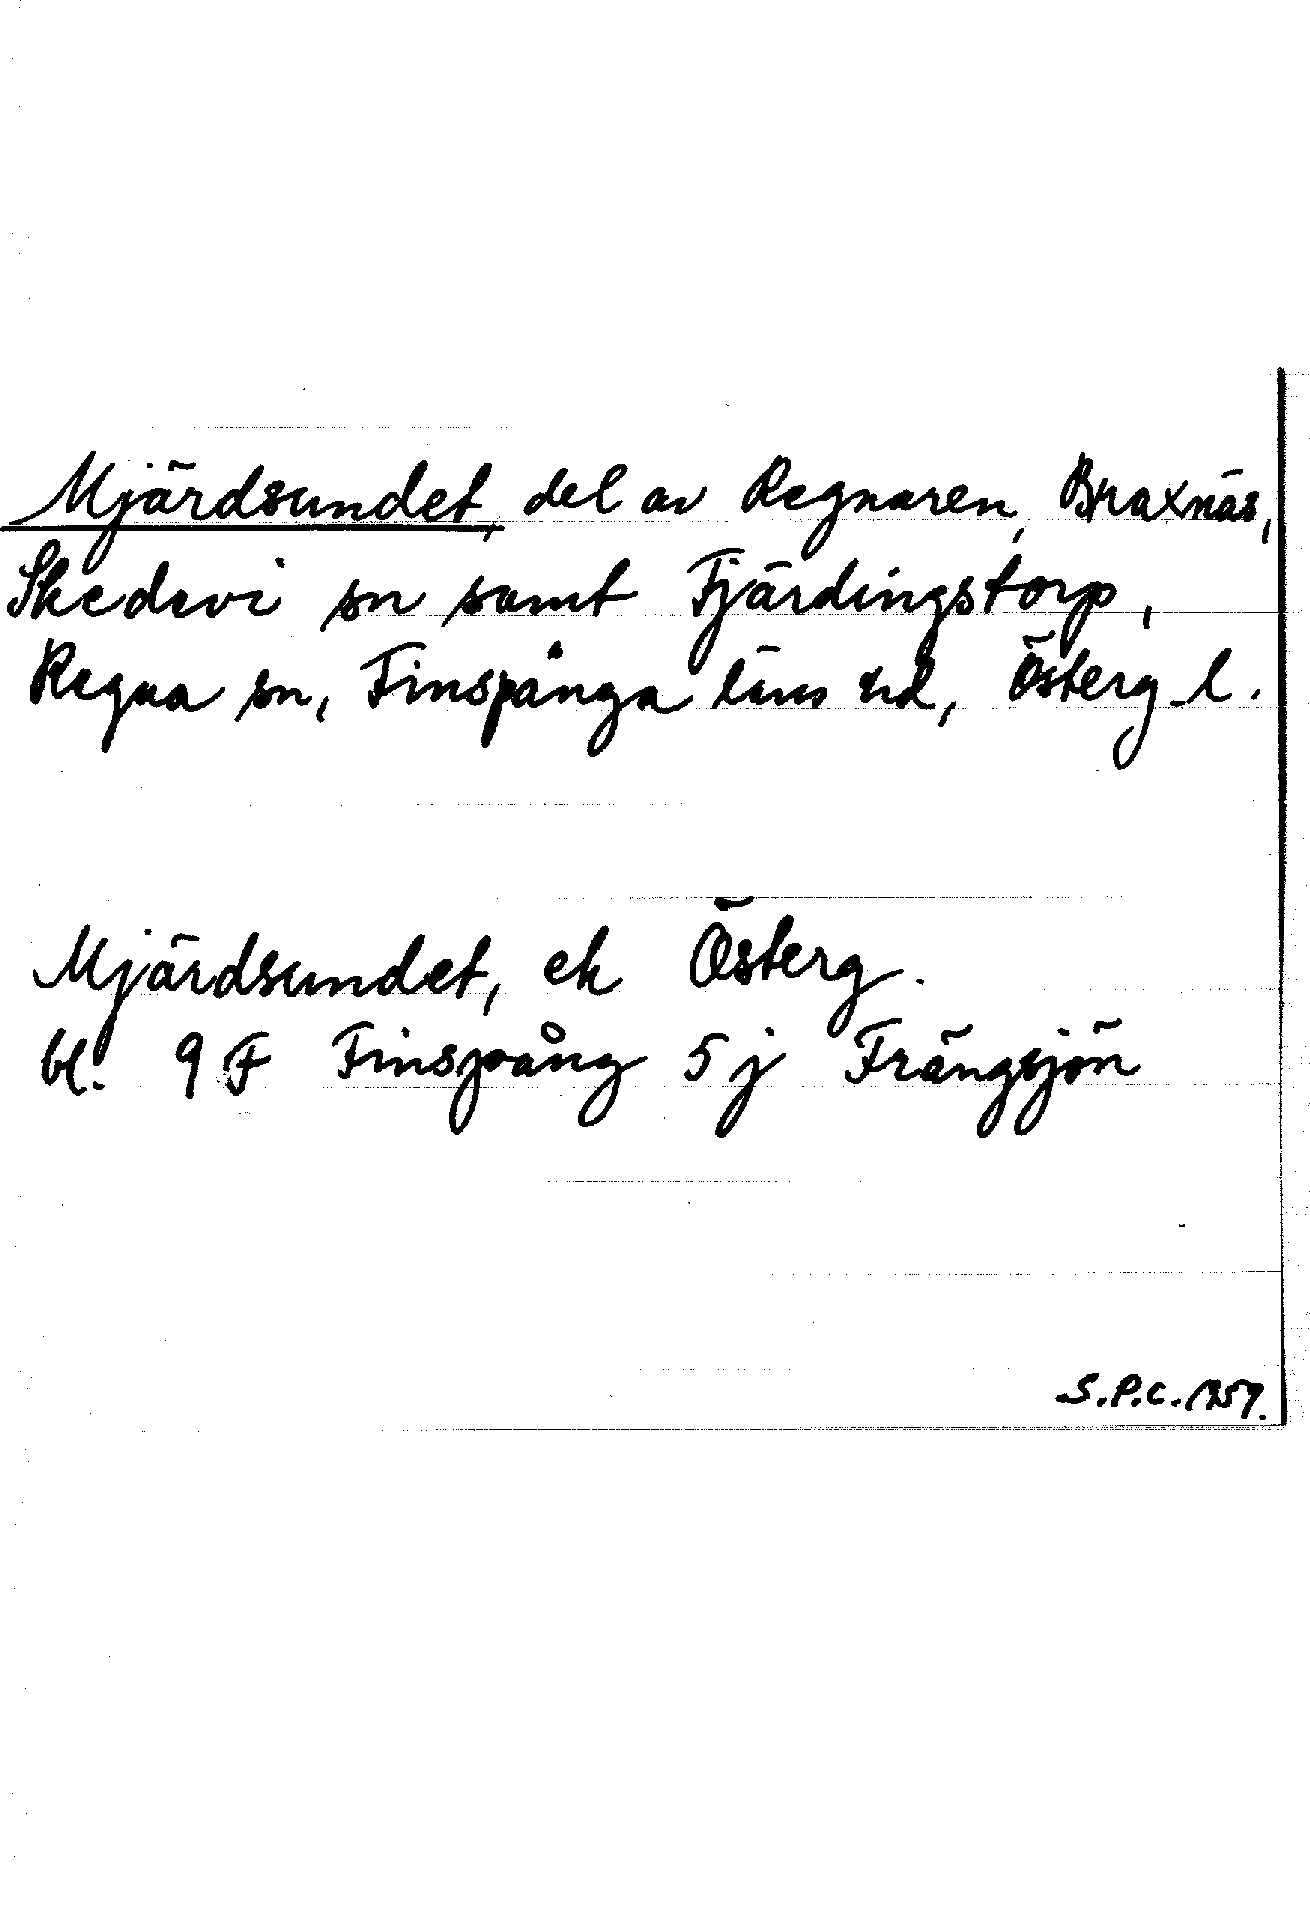 Mjärdsundet, del av Regnaren, Braxnäs,
Skedevi sn samt Fjärdingstorp,
Regna sn, Finspånga läns hd, Österg. l.
Mjärdsundet, ek Österg.
bl. 9 F Finspång 5 j Frängsjön
S.P.C. 1957.